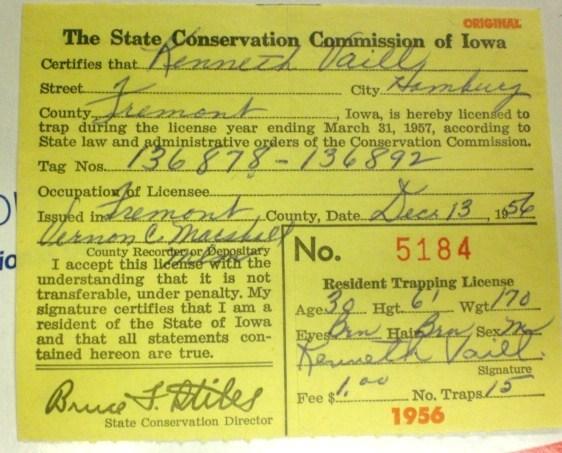 ORIGINAL
The State Conservation Commission of Iowa
Certifies that Kenneth Vaill
Street City Hamburg
County Fremont, Iowa, is hereby licensed to
trap during the license year ending March 31, 1957, according to
State law and administrative orders of the Conservation Commission.
Tag Nos. 136878-136892
Occupation of Licensee
Issued in Fremont County, Date Dec. 13, 1956
Vernon C. Marshall
County Recorder or Depositary
I accept this license with the
understanding that it is not
transferable, under penalty. My
signature certifies that I am a
resident of the State of Iowa
and that all statements con-
tained hereon are true.
Bruce F. Stiles
State Conservation Director
No. 5184
Resident Trapping License
Age 30 Hgt. 6' Wgt 170
Eyes Brn Hair Brn Sex M
Kenneth Vaill.
Signature
Fee $ 1.00 No. Traps 15
1956